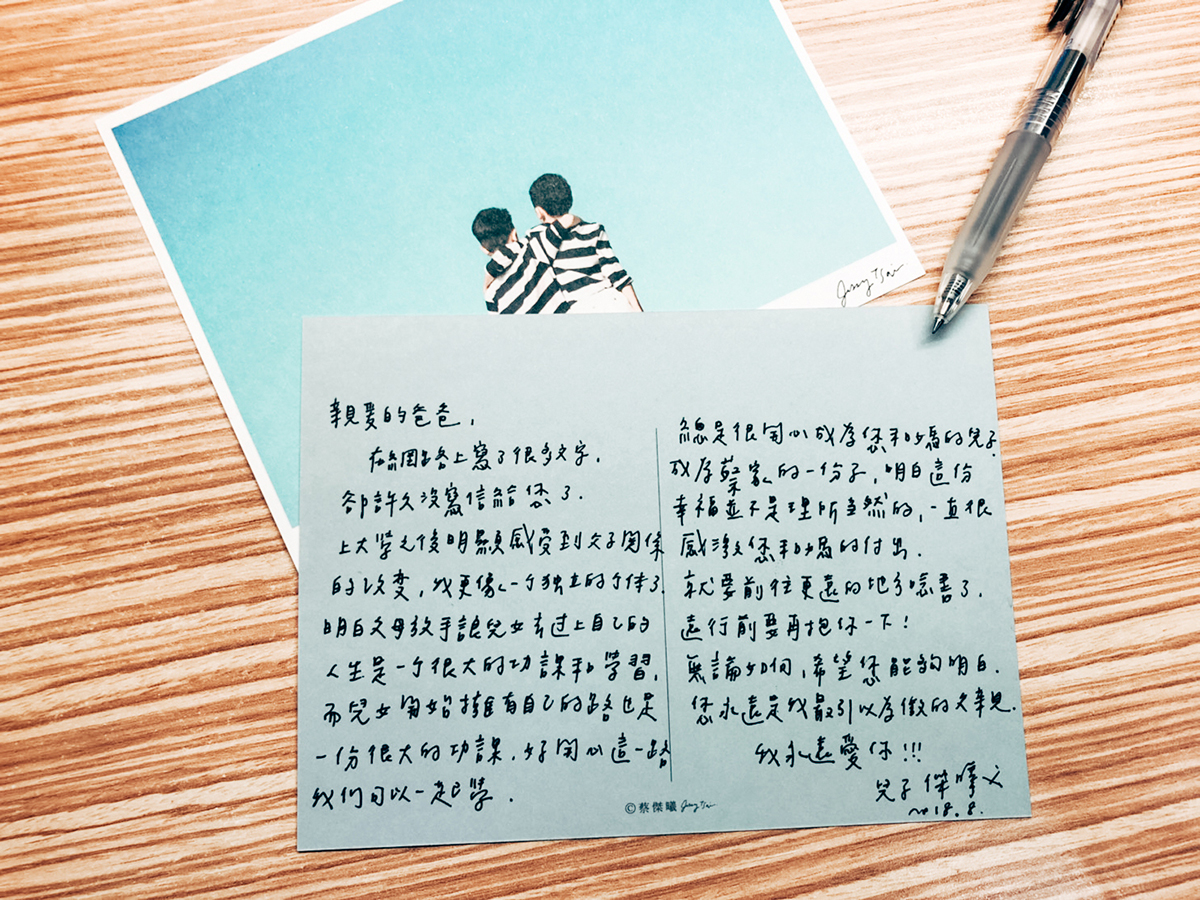 Jimy Tsai
親愛的爸爸,
在網路上寫了很多文字,
卻許久沒寫信給您了.
上大學之後明顯感受到父子關係
的改變, 我更像一個独立的个体了.
明白父母放手讓兒女去过上自己的
人生是一个很大的功課和學習,
而兒女開始擁有自己的路也是
一份很大的功課. 好開心這一路
我們可以一起學.
總是很開心成為您和媽的兒子.
成為蔡家的一份子, 明白這份
幸福並不是理所當然的, 一直很
感激您和媽的付出.
就要前往更遠的地方唸書了,
遠行前要再抱你一下!
無論如何, 希望您能夠明白.
您永遠是我最引以為傲的父親.
我永遠愛你!!!
兒子 傑曦
2018.8.
©蔡傑曦